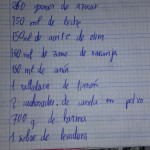 250 gramos de azúcar
250 ml de leche
150 ml de aceite de oliva
150 ml de zumo de naranja
150 ml de anís
1 ralladura de limón
2 cucharadas de canela en polvo
700 g de harina
1 sobre de levadura